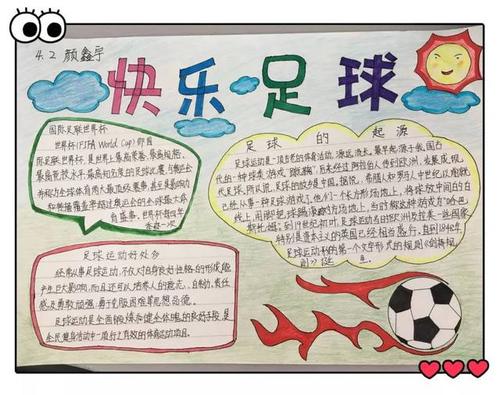 4.2 颜鑫宇
快乐足球
国际足联世界杯
世界杯(FIFA World Cup)即国
际足联世界杯,是世界上最高荣誉、最高规格、
最高竞技水平、最高知名度的足球比赛,与奥运会
并称为全球体育两大最顶级赛事,甚至是影响力
和转播覆盖率超过奥运会的全球最大体
育盛事。世界杯每四年
举办一次
足球的起源
足球运动是一项古老的体育活动,源远流长。最早起源于我国古
代的一种球类游戏"蹴鞠",后来经过阿拉伯人传到欧洲,发展成现
代足球。所以说,足球的故乡是中国。据说,希腊人和罗马人在中世纪以前就
已经从事一种足球游戏了。他们一个长方形场地上,将球放在中间的白
线上,用脚把球踢滚到对方场地上,当时称这种游戏为"哈巴
斯托姆"。到19世纪初叶,足球运动在当时欧洲及拉美一些国家
特别是资本主义的英国已经相当盛行。直到1848年,
足球运动的第一个文字形式的规则《剑桥规
则》
足球运动好处多
经常从事足球运动,不仅对自身良好性格的形成能
产生巨大影响,而且还可以培养人的意志、自制力、责任
感及勇敢顽强、勇于克服困难等思想品德。
足球运动是全面锻炼和健全体魄的良好手段,是
全民健身活动中一项行之有效的体育运动项目。